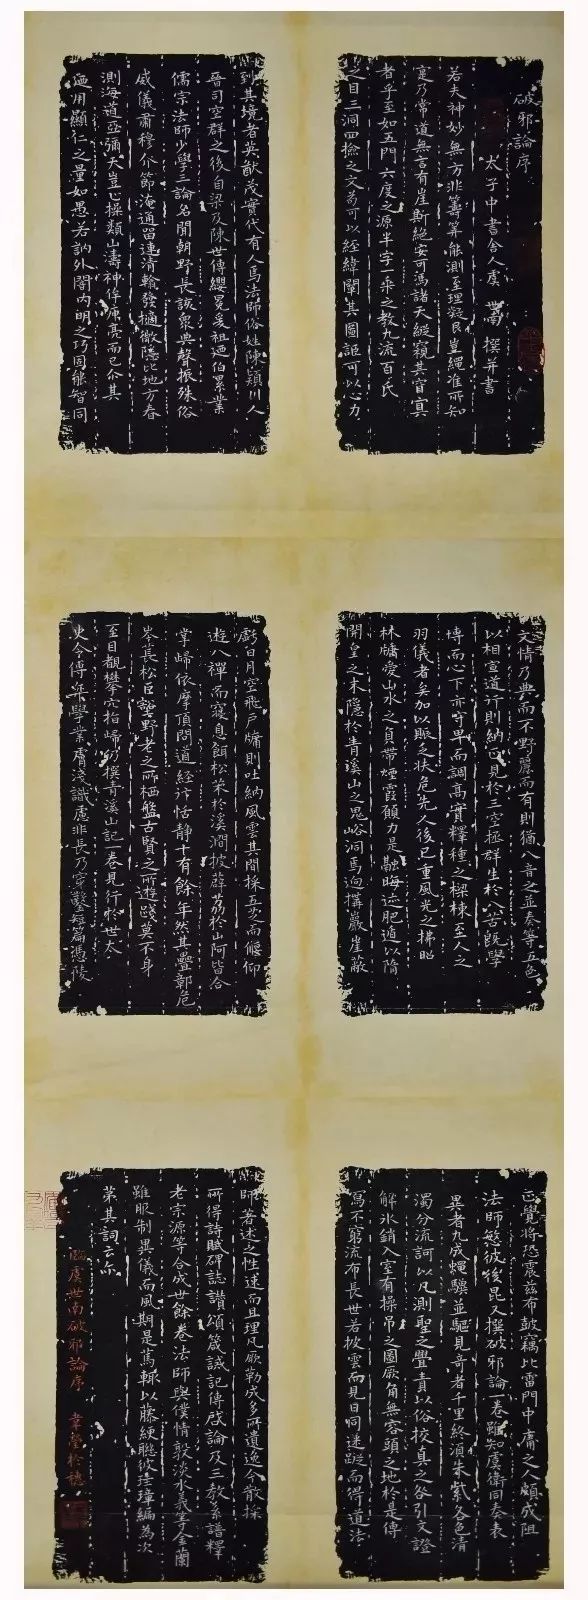 破邪論序
太子中書舍人虞世南撰并書
若夫神妙無方非籌筭能測至理凝邈豈繩准所知
寔乃常道無言有崖斯絕安可馮諸天縱窺其窅寞
者乎至如五門六度之源半字一乘之教九流百氏
之目三洞四撿之文苟可以經緯闡其圖詎可以心力
到其境者英猷茂實代有人焉法師俗姓陳穎川人
晉司空群之後自梁及陳世傳纓冕爰祖迺伯累業
儒宗法師少學三論名聞朝野長該衆典聲振殊俗
威儀肅穆介節淹通留連清翰發擿微隱比地方春
測海道亞彌天豈止操類山濤神侔庾亮而已介其
迺用顯仁之量如愚若訥外闇內明之巧固能智同
文情乃典而不野麗而有則猶八音之並奏等五色
以相宣道行則納正見於三空拯群生於八苦既學
博而心下亦守卑而調高實釋種之樑棟至人之
羽儀者矣加以賑乏扶危先人後已重風光之拂照
林牖愛山水之負帶煙霞願力是融晦迹肥遁以隋
開皇之末隱於青溪山之鬼峪洞焉迥構巖崖蔽
虧日月空飛戶牖則吐納風雲其間採五芝而偃仰
遊八禪而寢息餌松茱於溪澗披薜荔於山阿皆合
掌歸依摩頂問道經行恬靜十有餘年然其疊鄣危
岑長松巨壑野老之所栖盤古賢之所遊踐莫不身
至目觀攀六指歸仍撰青溪山記一卷見行於世太
史令傅奕學業膚淺識慮非長乃穿鑿短篇憑陵
正覺將恐震茲布鼓竊比雷門中庸之人頗成阻
法師愍彼後昆又撰破邪論一卷雖知虞衛同奏表
異者九成蠅驥並驅見奇者千里終須朱紫各色清
濁分流訶以凡測聖之舋責以俗校真之咎引文證
解冰銷入室有操吊之圖厥角無容頭之地於是傳
寫不窮流布長世若披雲而見日同迷蹤而得道法
師著述之性速而且理凡厥勒成多所遺逸今散採
所得詩賦碑誌讚頌箴誡記傳啟論及三教系譜釋
老宗源等合成世餘卷法師與僕情敦淡水義等金蘭
雖服制異儀而風期是篤輒以藤綆聯彼珪璋編為次
第其詞云尒
臨虞世南破邪論序